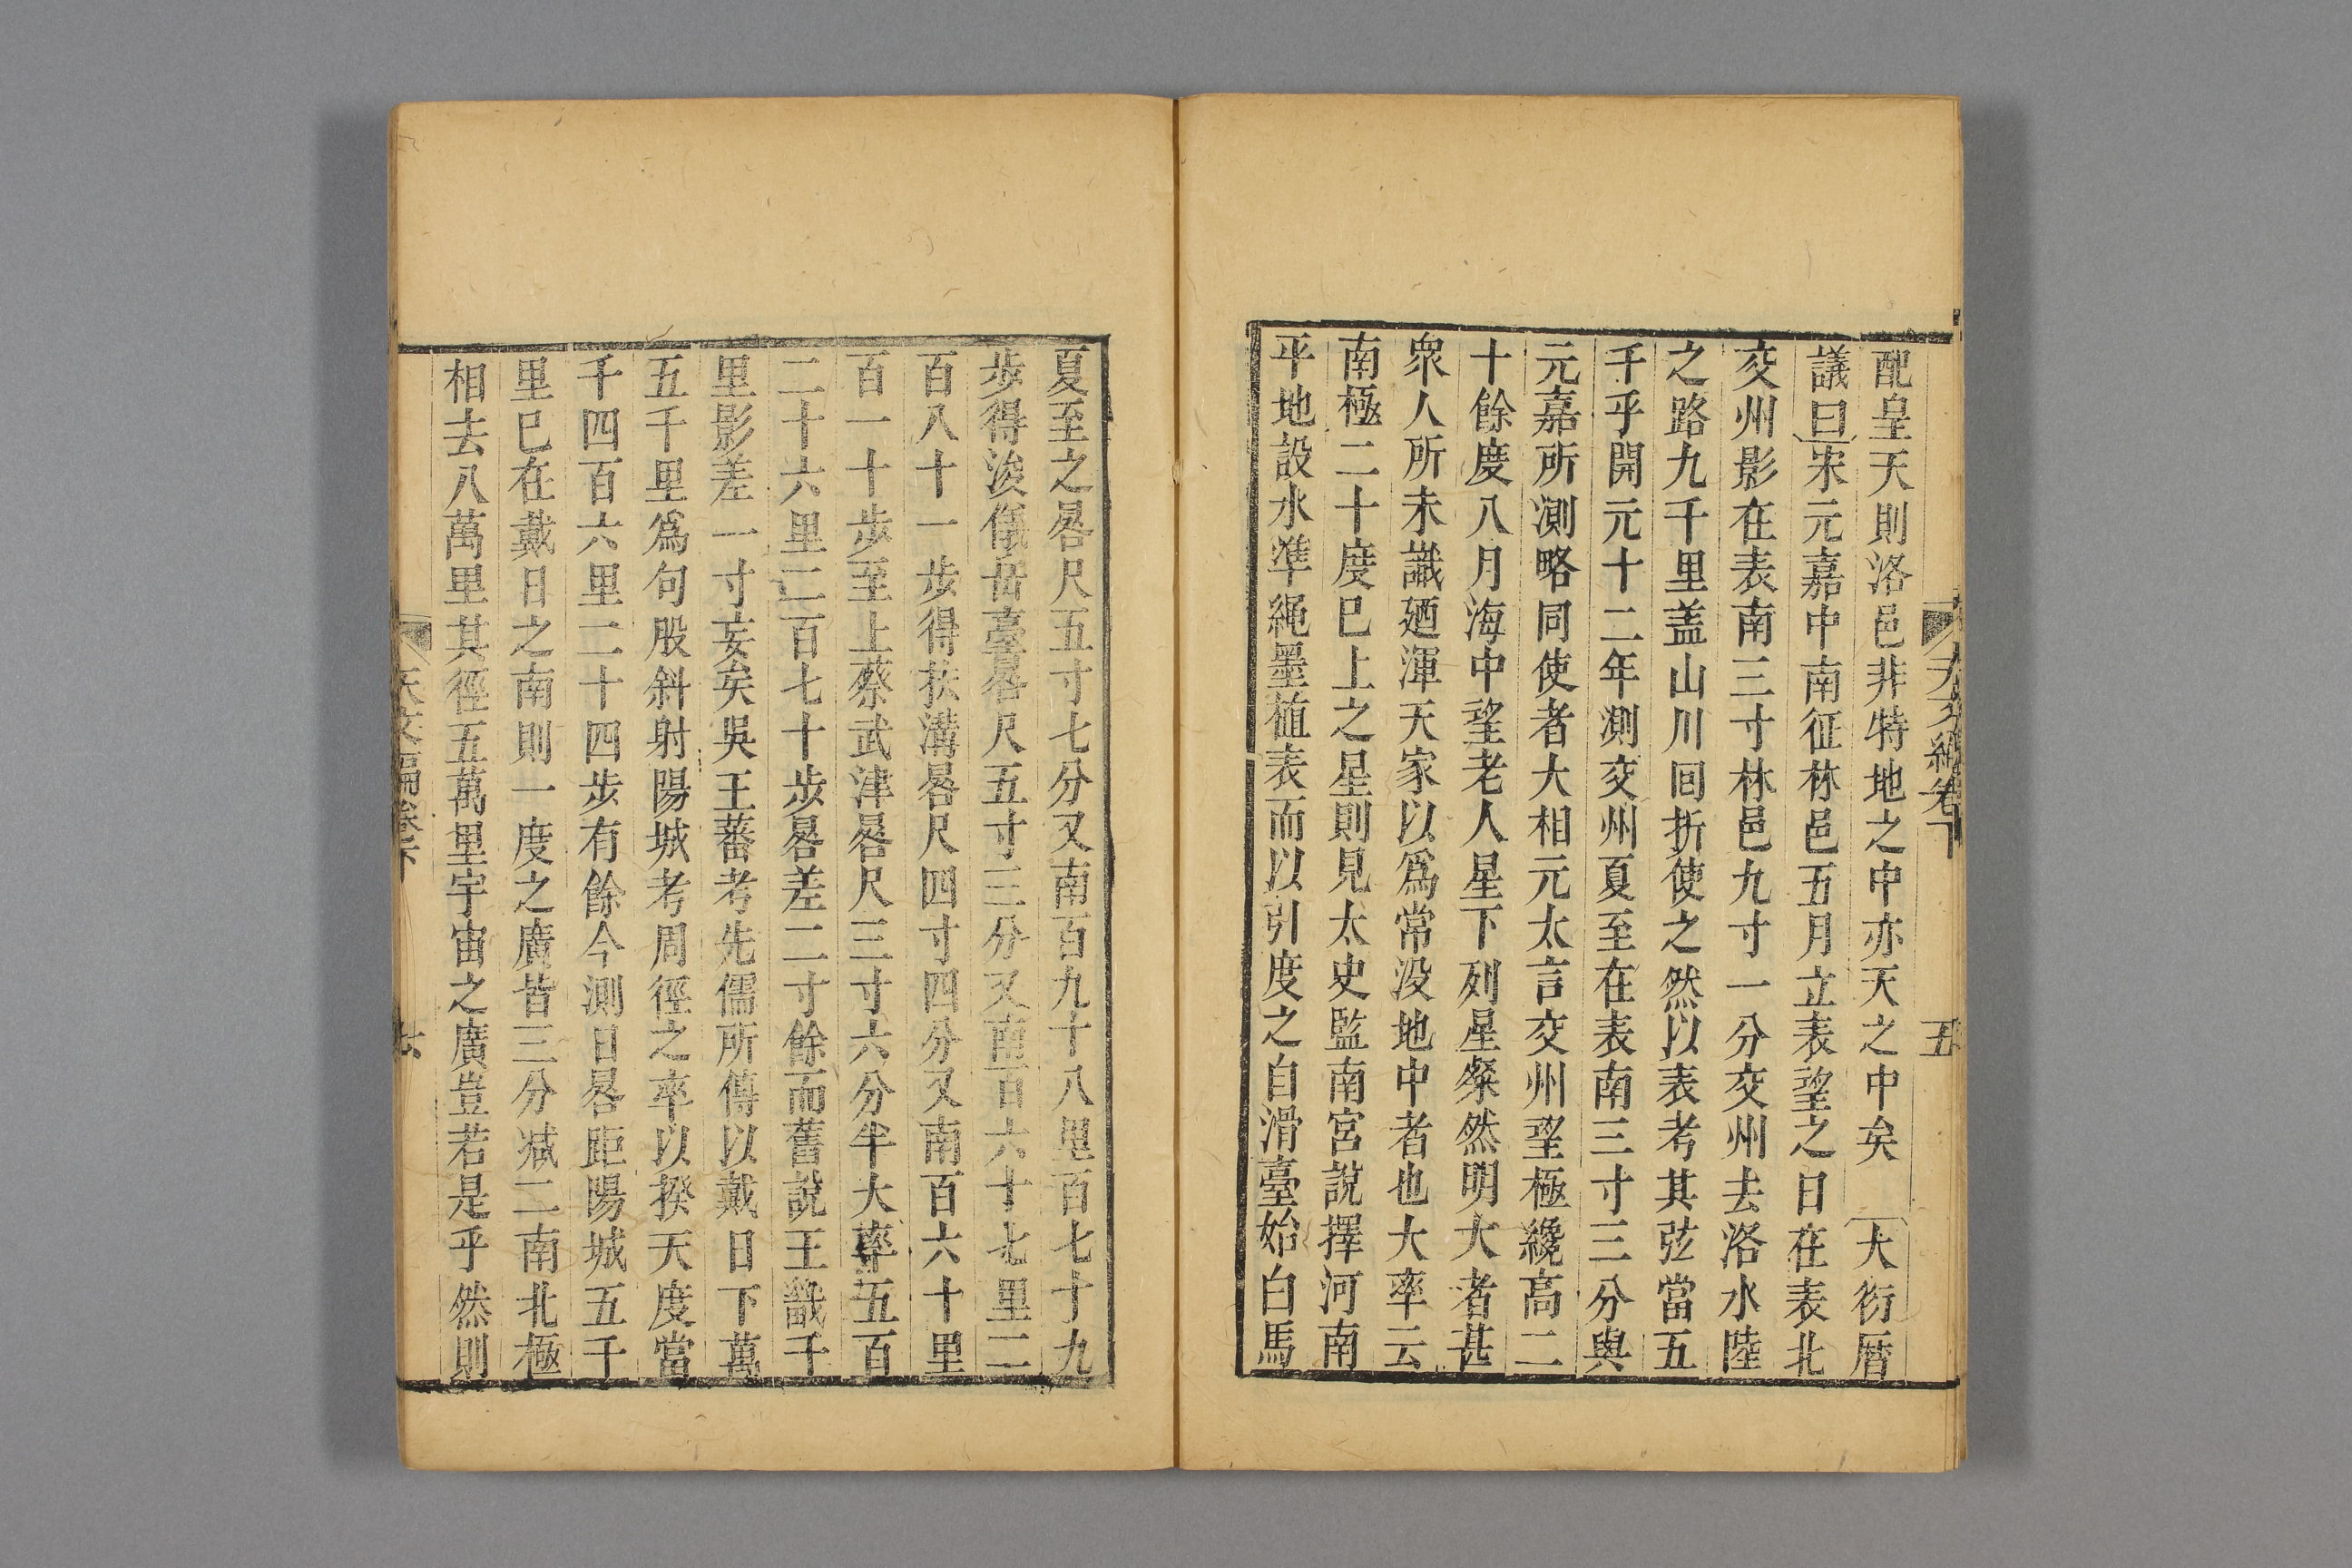 配皇天則洛邑非特地之中亦天之中矣　大衍曆
議曰宋元嘉中南征林邑五月立表望之日在表北
交州影在表南三寸林邑九寸一分交州去洛水陸
之路九千里盖山川回折使之然以表考其弦當五
千乎開元十二年測交州夏至在表南三寸三分與
元嘉所測略同使者大相元太言交州望極纔高二
十餘度八月海中望老人星下列星粲然明大者甚
衆人所未識廼渾天家以爲常没地中者也大率云
南極二十度已上之星則見太史監南宮說擇河南
平地設水準繩墨植表而以引度之自滑臺始白馬
夏至之晷尺五寸七分又南百九十八里百七十九
步得浚儀岳臺晷尺五寸三分又南百六十七里二
百八十一步得扶溝晷尺四寸四分又南百六十里
百一十步至上蔡武津晷尺三寸六分半大率五百
二十六里二百七十步晷差二寸餘而舊說王畿千
里影差一寸妄矣吳王蕃考先儒所傳以戴日下萬
五千里爲句股斜射陽城考周徑之率以揆天度當
千四百六里二十四步有餘今測日晷距陽城五千
里已在戴日之南則一度之廣皆三分减二南北極
相去八萬里其徑五萬里宇宙之廣豈若是乎然則
天文編卷下
五
天文編卷下